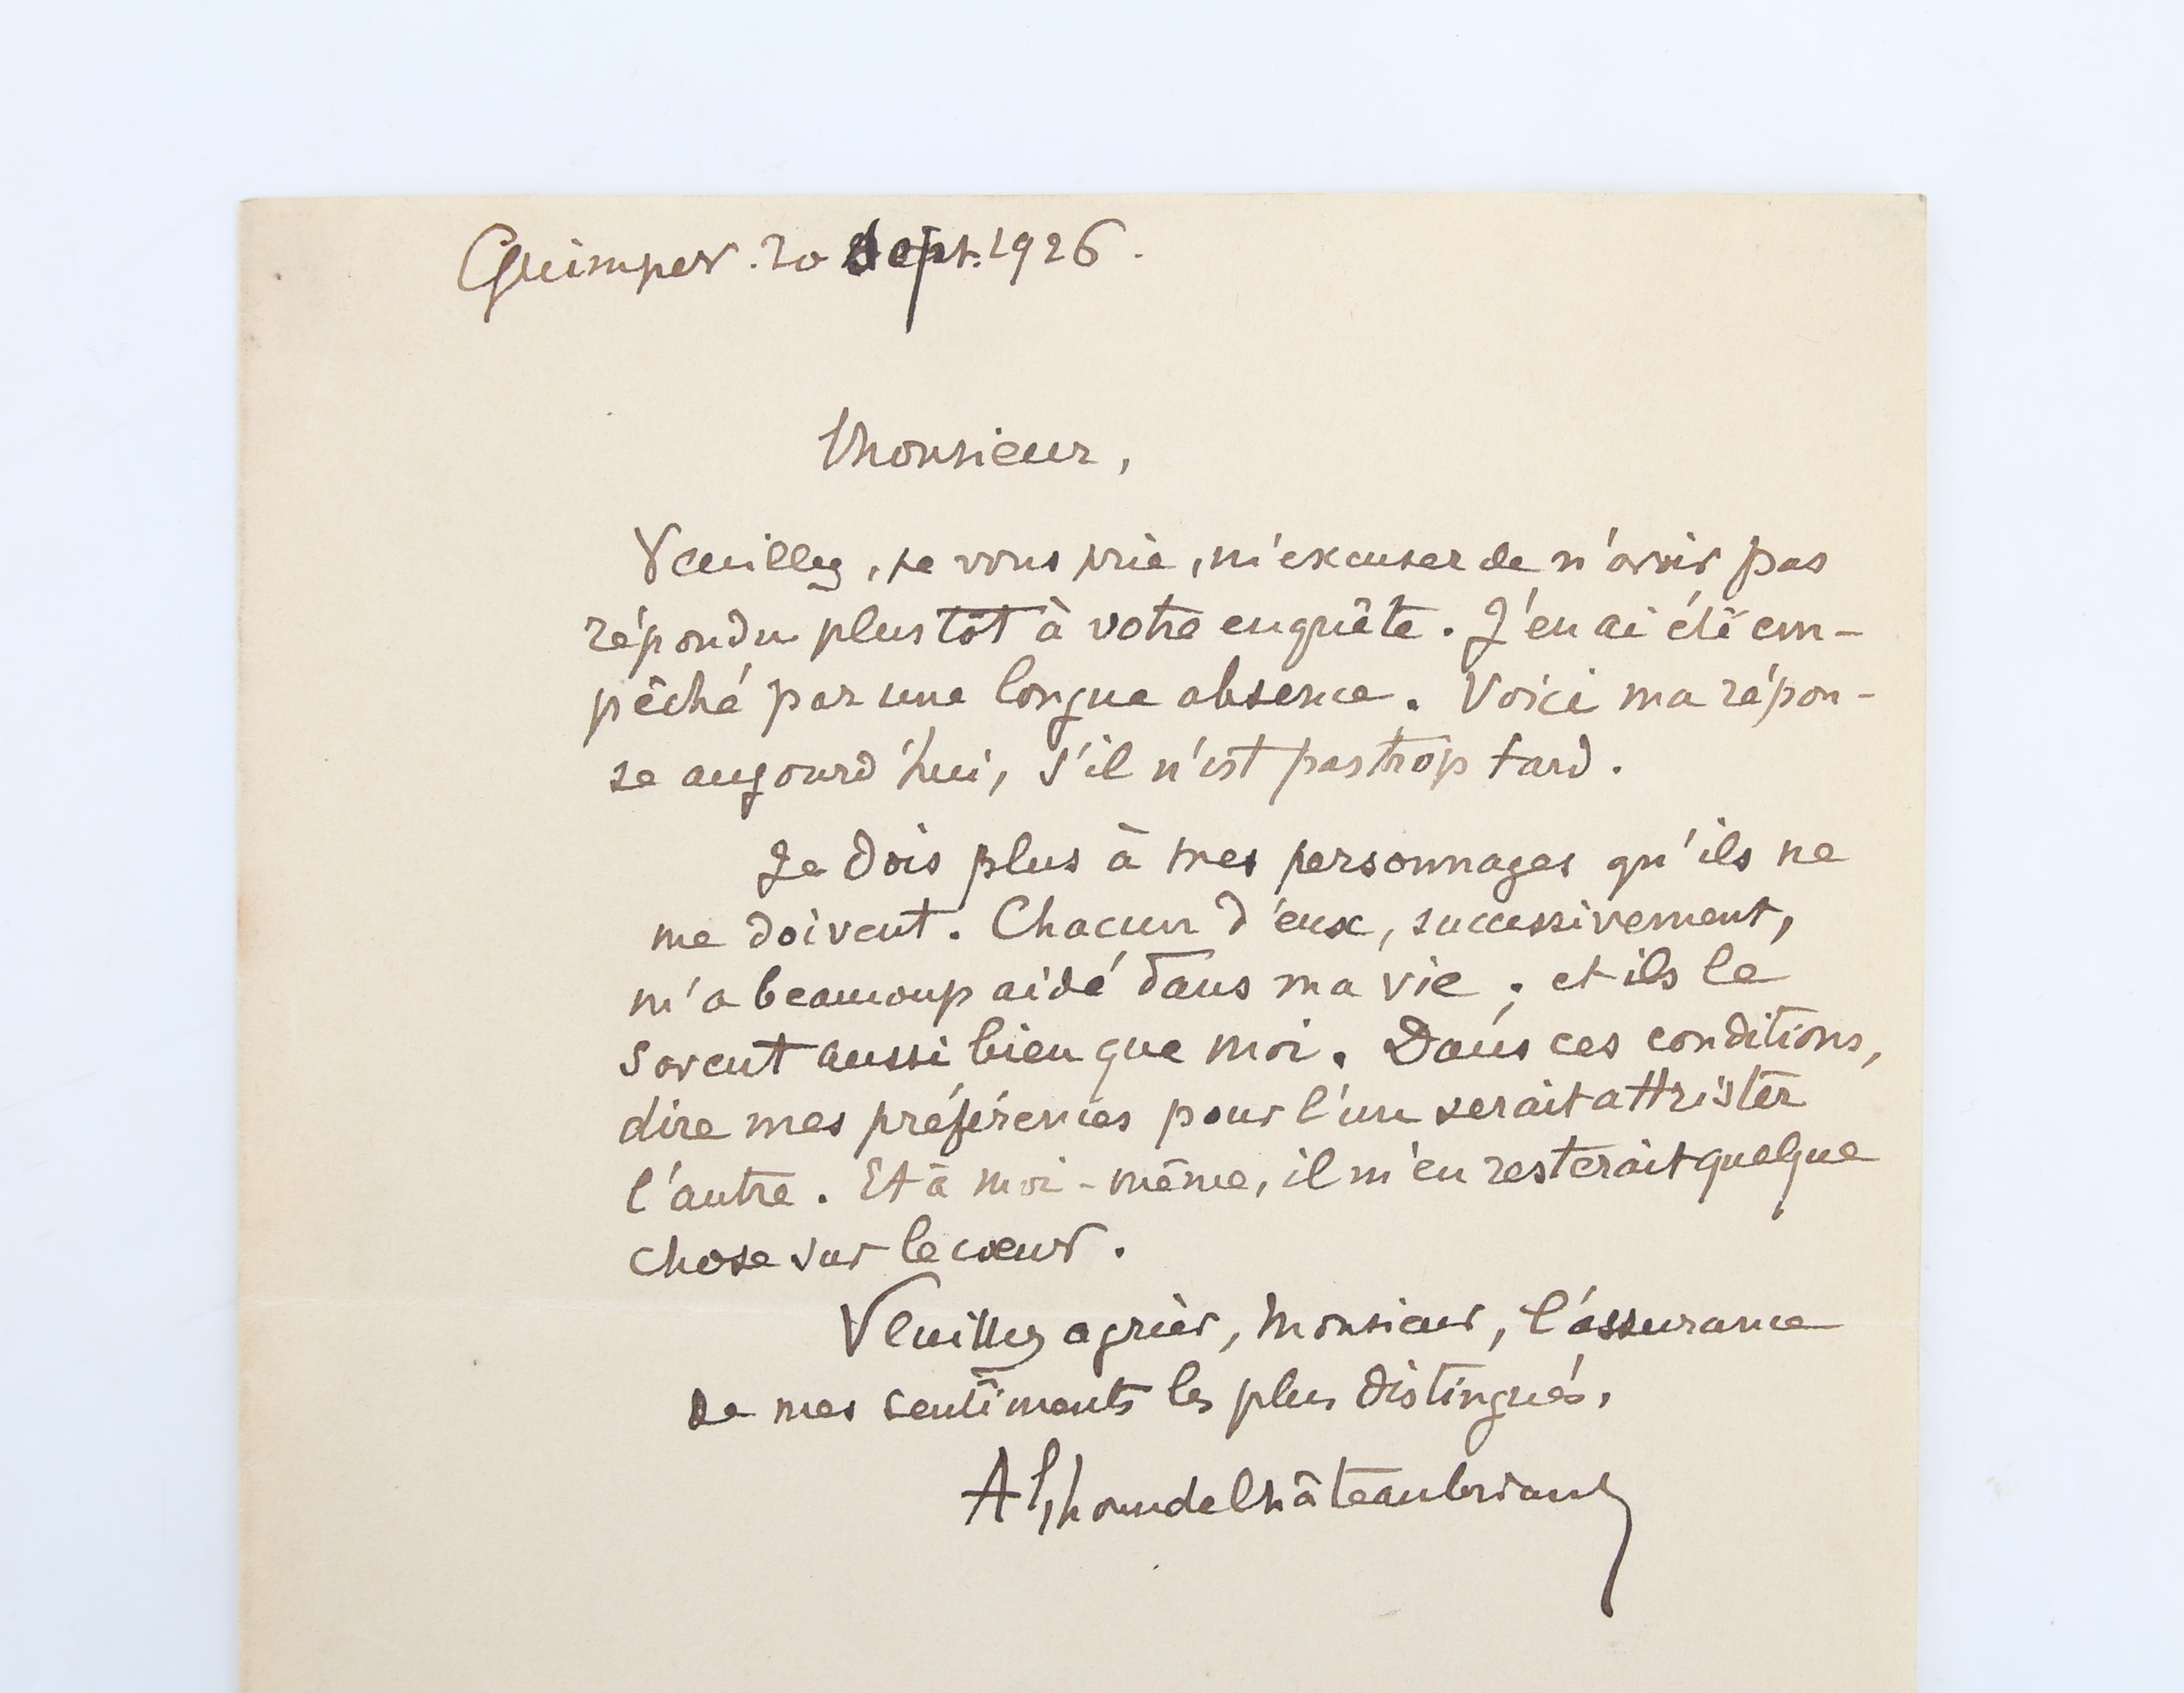 Quimper. 20 Sept. 1926.
Monsieur,
Veuillez, je vous prie, m'excuser de n'avoir pas
répondu plus tôt à votre enquête. J'en ai été em-
pêché par une longue absence. Voici ma répon-
se aujourd'hui, s'il n'est pas trop tard.
Je dois plus à mes personnages qu'ils ne
me doivent. Chacun d'eux, successivement,
m'a beaucoup aidé dans ma vie ; et ils le
savent aussi bien que moi. Dans ces conditions,
dire mes préférences pour l'un serait attrister
l'autre. Et à moi-même, il m'en resterait quelque
chose sur le cœur.
Veuillez agréer, Monsieur, l'assurance
de mes sentiments les plus distingués,
Alphonse de Châteaubriant